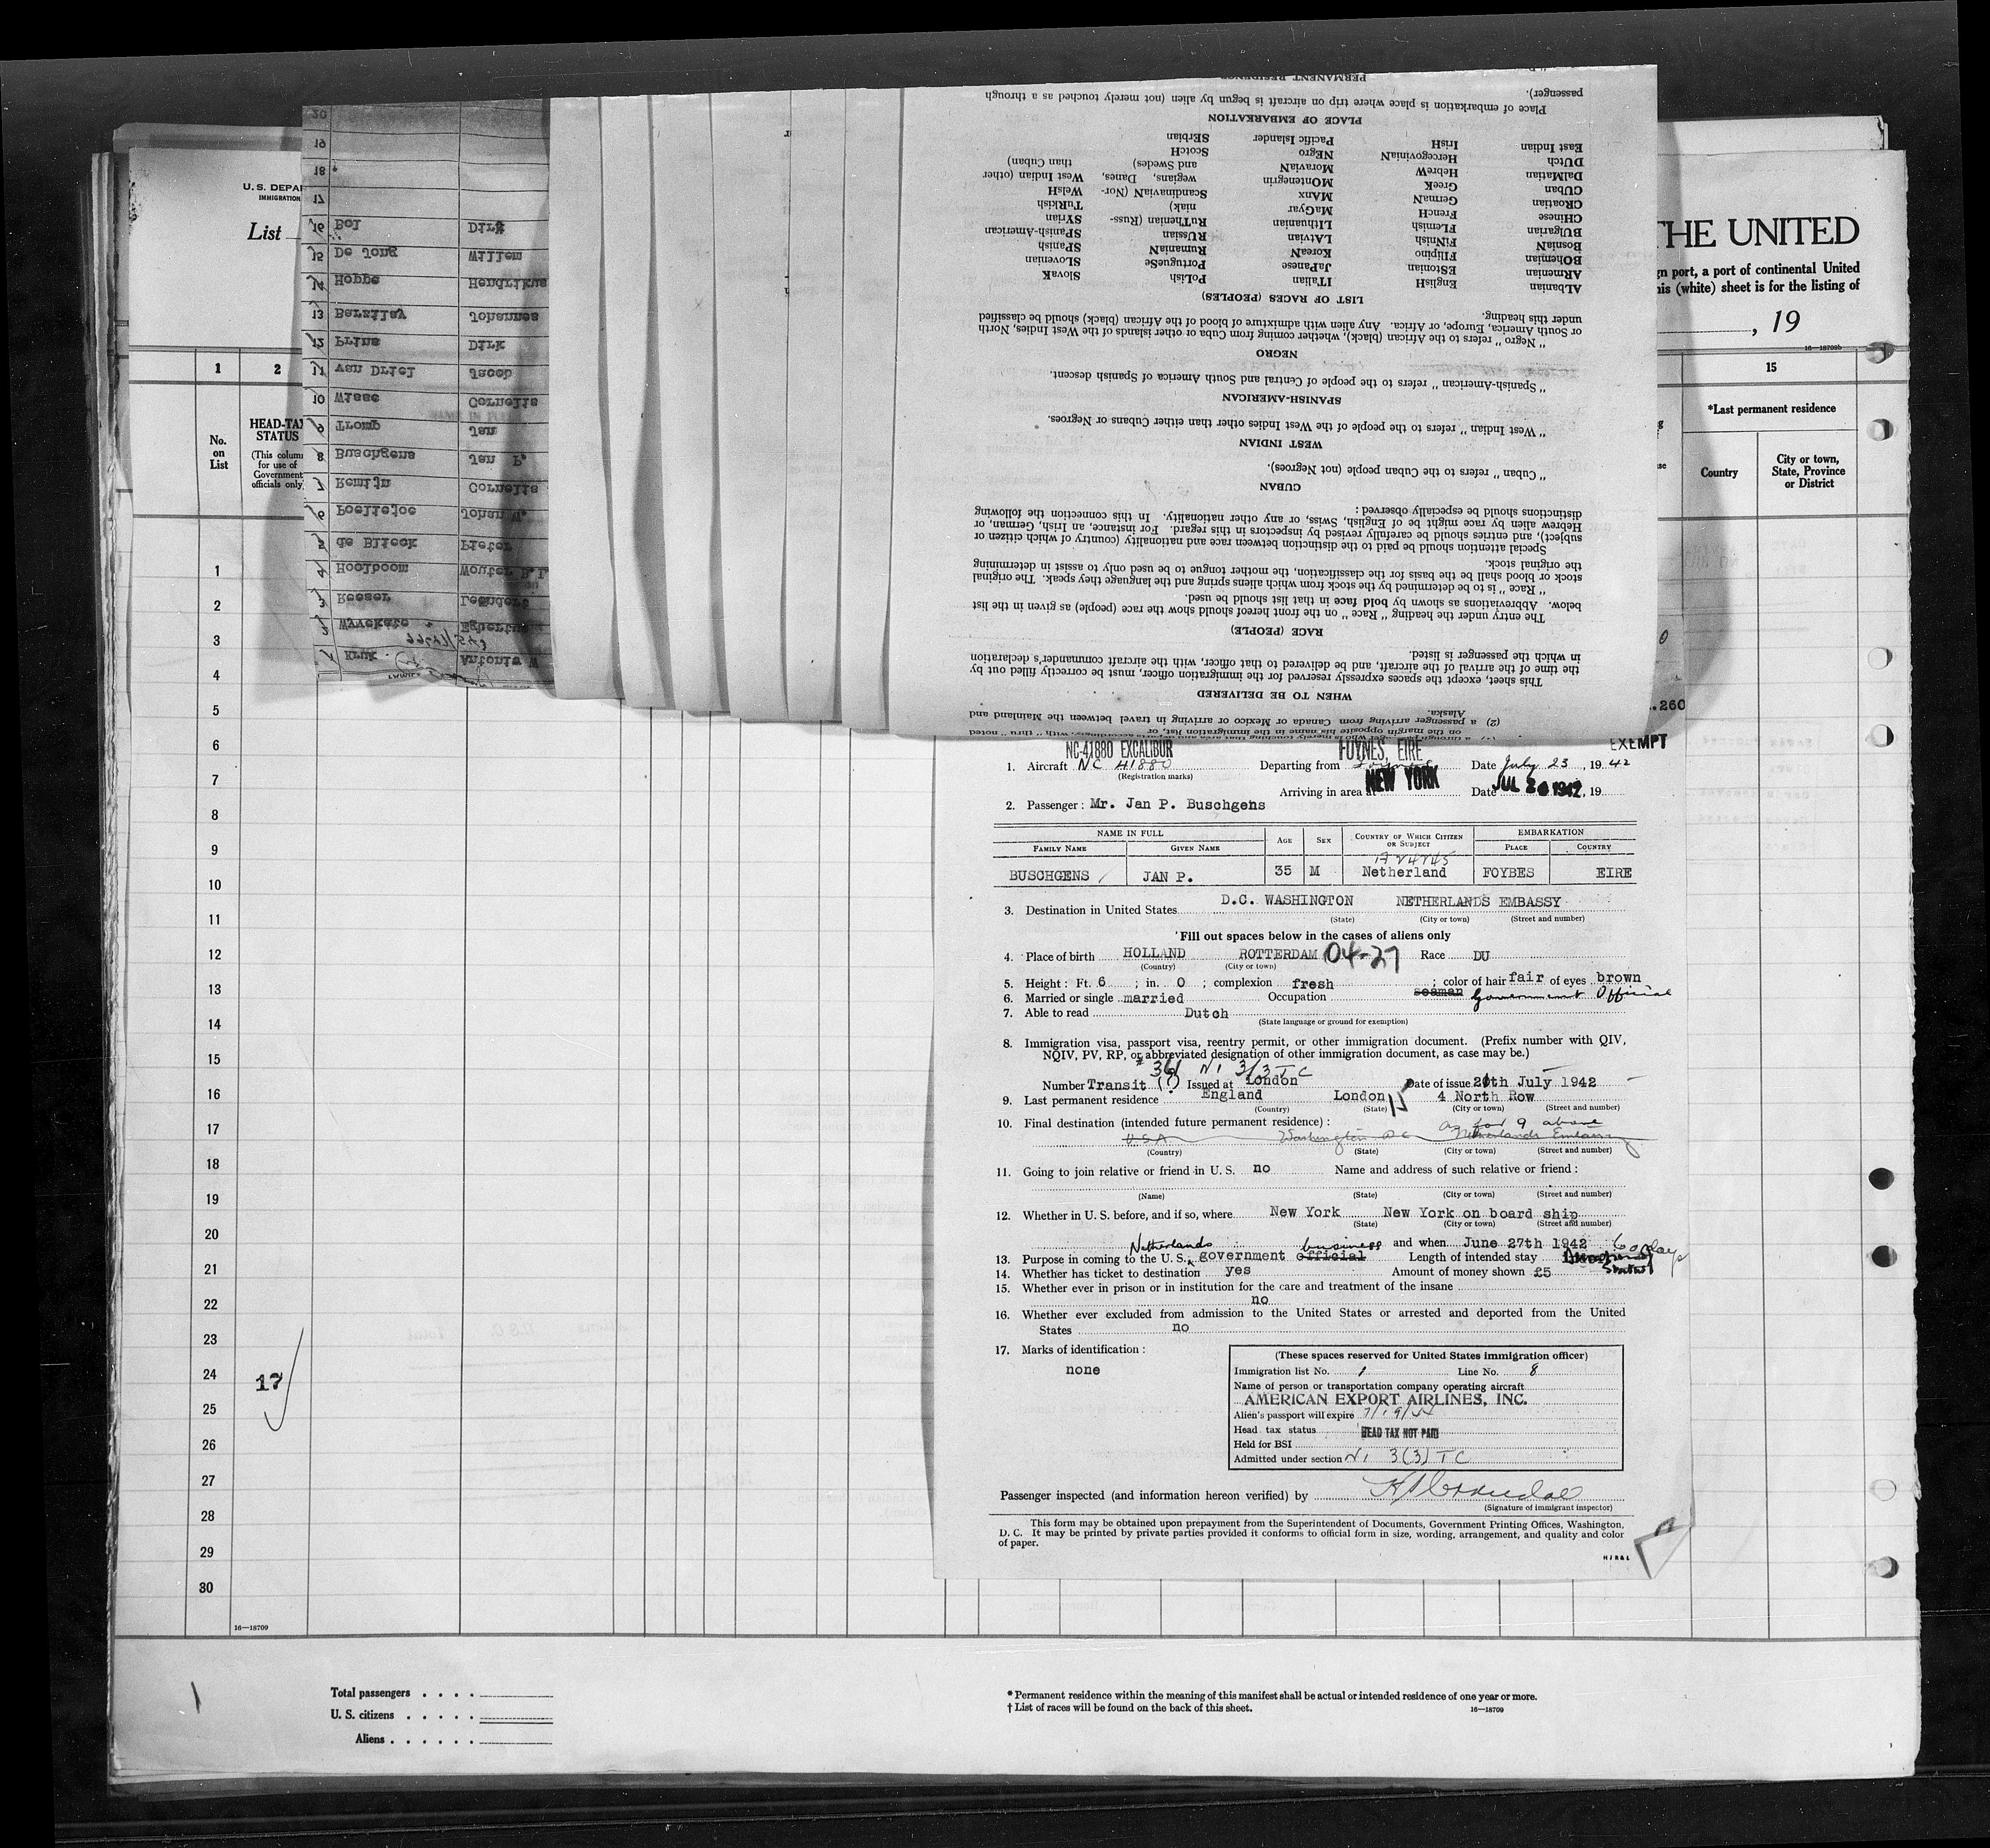 U. S. DEPA
IMMIGRATION
List
THE UNITED
gn port, a port of continental United
his (white) sheet is for the listing of
, 19
16—18709b
1
2
15
No. on List
HEAD-TAX STATUS
(This column for use of Government officials only)
*Last permanent residence
Country
City or town, State, Province or District
1
2
3
4
5
6
7
8
9
10
11
12
13
14
15
16
17
18
19
20
21
22
23
24
25
26
27
28
29
30
17
16—18709
20
19
18
17
16 Bol Dirk
15 De Jong Willem
14 Hoppe Hendrikus
13 Barzilay Johannes
12 Prins Dirk
11 van Driel Jacob
10 Wisse Cornelis
9 Tromp Jan
8 Buschgens Jan P.
7 Remijn Cornelis
6 Poeltejoe Johan W.
5 de Blieck Pieter
4 Hoolboom Wouter
3 Keeser Leendert
2 Wyvekate
1 Kruk Antonie W
(2) a passenger arriving from Canada or Mexico or arriving in travel between the Mainland and
Alaska.
WHEN TO BE DELIVERED
This sheet, except the spaces expressly reserved for the immigration officer, must be correctly filled out by
the time of the arrival of the aircraft, and be delivered to that officer, with the aircraft commander's declaration
in which the passenger is listed.
RACE (PEOPLE)
The entry under the heading "Race" on the front hereof should show the race (people) as given in the list
below. Abbreviations as shown by bold face in that list should be used.
"Race" is to be determined by the stock from which aliens spring and the language they speak. The original
stock or blood shall be the basis for the classification, the mother tongue to be used only to assist in determining
the original stock.
Special attention should be paid to the distinction between race and nationality (country of which citizen or
subject), and entries should be carefully revised by inspectors in this regard. For instance, an Irish, German, or
Hebrew alien by race might be of English, Swiss, or any other nationality. In this connection the following
distinctions should be especially observed:
CUBAN
"Cuban" refers to the Cuban people (not Negroes).
WEST INDIAN
"West Indian" refers to the people of the West Indies other than either Cubans or Negroes.
SPANISH-AMERICAN
"Spanish-American" refers to the people of Central and South America of Spanish descent.
NEGRO
"Negro" refers to the African (black), whether coming from Cuba or other islands of the West Indies, North
or South America, Europe, or Africa. Any alien with admixture of blood of the African (black) should be classified
under this heading.
LIST OF RACES (PEOPLES)
ALbanian EnglisH ITalian PoLish SlovaK
ARmenian EStonian JaPanese PortugueSe SLOvenian
BOhemian FIlipino KoreaN RumaniaN SPanish
BosniaN FiNish LAtvian RUssian SPanish-American
BUlgarian FLemisH LIthuanian RuThenian (Russniak) SYrian
CHinese FrencH MaGyar Scandinavian (Norwegians, Danes, and Swedes) TuRkish
CRoatian GermaN MAnx ScotcH WelsH
CUban GreeK MOntenegrin SErbian West Indian (other than Cuban)
DalMatian HebreW MoraviaN
DUtch HercegovinaN NEgro
East Indian IrisH Pacific Islander
PLACE OF EMBARKATION
Place of embarkation is place where trip on aircraft is begun by alien (not merely touched as a through
passenger).
PERMANENT RESIDENCE
.260
EXEMPT
NC-41880 EXCALIBUR FOYNES, EIRE
1. Aircraft NC 41880 Departing from Date July 23, 1942
(Registration marks)
Arriving in area at NEW YORK Date JUL 24 1942, 19
2. Passenger: Mr. Jan P. Buschgens
NAME IN FULL AGE SEX COUNTRY OF WHICH CITIZEN OR SUBJECT EMBARKATION
FAMILY NAME GIVEN NAME PLACE COUNTRY
BUSCHGENS JAN P. 35 M Netherland FOYBES EIRE
3. Destination in United States D.C. WASHINGTON NETHERLANDS EMBASSY
(State) (City or town) (Street and number)
Fill out spaces below in the cases of aliens only
4. Place of birth HOLLAND ROTTERDAM 04-27 Race DU
(Country) (City or town)
5. Height: Ft. 6 ; in. 0 ; complexion fresh ; color of hair fair of eyes brown
6. Married or single married Occupation seaman Government Official
7. Able to read Dutch
(State language or ground for exemption)
8. Immigration visa, passport visa, reentry permit, or other immigration document. (Prefix number with QIV,
NQIV, PV, RP, or abbreviated designation of other immigration document, as case may be.)
# 361 NI 3/3 TC
Number Transit (!) Issued at London Date of issue 20th July 1942
9. Last permanent residence England London 4 North Row
(Country) (State) (City or town) (Street and number)
10. Final destination (intended future permanent residence): as for 9 above
USA Washington DC Netherlands Embassy
(Country) (State) (City or town) (Street and number)
11. Going to join relative or friend in U. S. no Name and address of such relative or friend:
(Name) (State) (City or town) (Street and number)
12. Whether in U. S. before, and if so, where New York New York on board ship
(State) (City or town) (Street and number)
and when June 27th 1942 60 days
13. Purpose in coming to the U. S. Netherlands government official business Length of intended stay
14. Whether has ticket to destination yes Amount of money shown £5
15. Whether ever in prison or in institution for the care and treatment of the insane
no
16. Whether ever excluded from admission to the United States or arrested and deported from the United
States no
17. Marks of identification:
none
(These spaces reserved for United States immigration officer)
Immigration list No. 1 Line No. 8
Name of person or transportation company operating aircraft
AMERICAN EXPORT AIRLINES, INC.
Alien's passport will expire 7/19/44
Head tax status HEAD TAX NOT PAID
Held for BSI
Admitted under section NI 3(3) TC
Passenger inspected (and information hereon verified) by
(Signature of immigrant inspector)
This form may be obtained upon prepayment from the Superintendent of Documents, Government Printing Offices, Washington,
D. C. It may be printed by private parties provided it conforms to official form in size, wording, arrangement, and quality and color
of paper.
Total passengers
U. S. citizens
Aliens
* Permanent residence within the meaning of this manifest shall be actual or intended residence of one year or more.
† List of races will be found on the back of this sheet.
16—18709